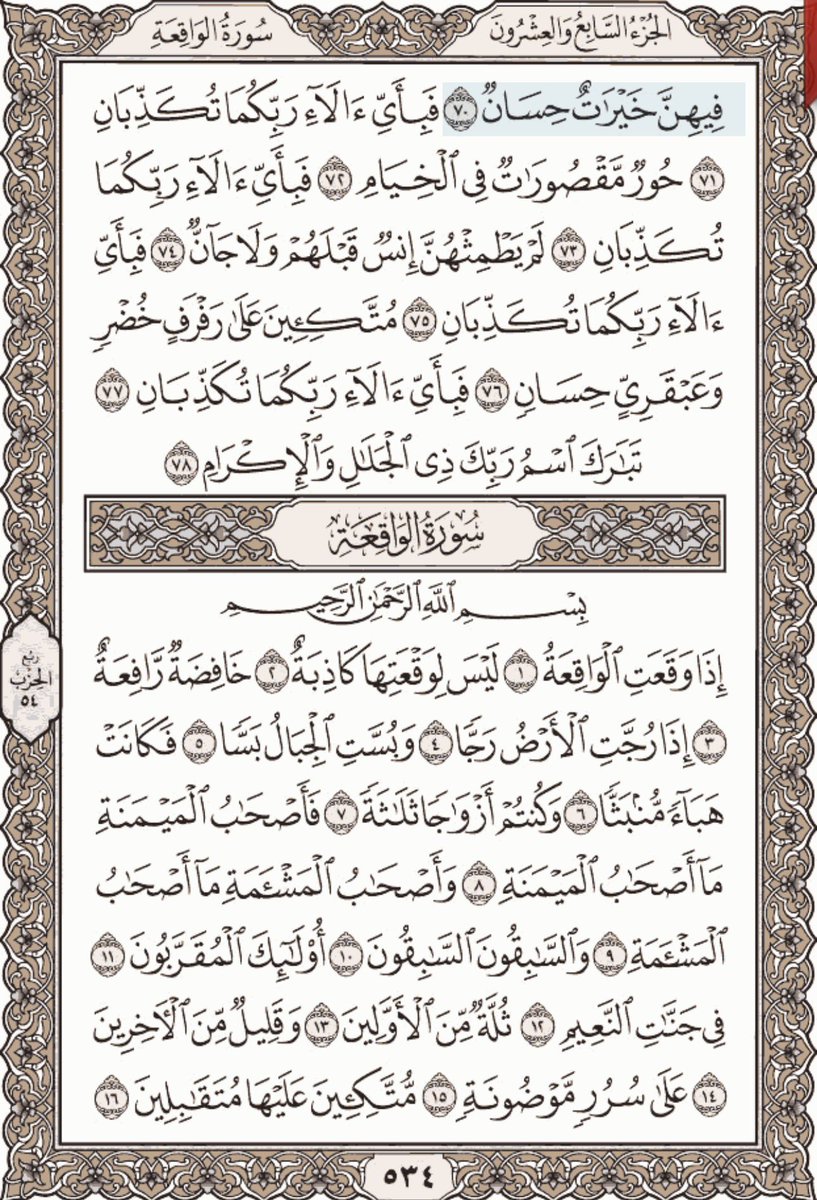 سُورَةُ الوَاقِعَةِ
الجُزْءُ السَّابِعُ وَالعِشْرُونَ
فِيهِنَّ خَيْرَٰتٌ حِسَانٞ ٧٠ فَبِأَيِّ ءَالَآءِ رَبِّكُمَا تُكَذِّبَانِ
٧١ حُورٞ مَّقْصُورَٰتٞ فِي ٱلْخِيَامِ ٧٢ فَبِأَيِّ ءَالَآءِ رَبِّكُمَا
تُكَذِّبَانِ ٧٣ لَمْ يَطْمِثْهُنَّ إِنسٞ قَبْلَهُمْ وَلَا جَآنّٞ ٧٤ فَبِأَيِّ
ءَالَآءِ رَبِّكُمَا تُكَذِّبَانِ ٧٥ مُتَّكِـِٔينَ عَلَىٰ رَفْرَفٍ خُضْرٖ
وَعَبْقَرِيٍّ حِسَانٖ ٧٦ فَبِأَيِّ ءَالَآءِ رَبِّكُمَا تُكَذِّبَانِ ٧٧
تَبَٰرَكَ ٱسْمُ رَبِّكَ ذِي ٱلْجَلَٰلِ وَٱلْإِكْرَامِ ٧٨
سُورَةُ الوَاقِعَةِ
بِسْمِ ٱللَّهِ ٱلرَّحْمَٰنِ ٱلرَّحِيمِ
إِذَا وَقَعَتِ ٱلْوَاقِعَةُ ١ لَيْسَ لِوَقْعَتِهَا كَاذِبَةٌ ٢ خَافِضَةٞ رَّافِعَةٌ
٣ إِذَا رُجَّتِ ٱلْأَرْضُ رَجّٗا ٤ وَبُسَّتِ ٱلْجِبَالُ بَسّٗا ٥ فَكَانَتْ
هَبَآءٗ مُّنۢبَثّٗا ٦ وَكُنتُمْ أَزْوَٰجٗا ثَلَٰثَةٗ ٧ فَأَصْحَٰبُ ٱلْمَيْمَنَةِ
مَآ أَصْحَٰبُ ٱلْمَيْمَنَةِ ٨ وَأَصْحَٰبُ ٱلْمَشْـَٔمَةِ مَآ أَصْحَٰبُ
ٱلْمَشْـَٔمَةِ ٩ وَٱلسَّٰبِقُونَ ٱلسَّٰبِقُونَ ١٠ أُوْلَٰٓئِكَ ٱلْمُقَرَّبُونَ ١١
فِي جَنَّٰتِ ٱلنَّعِيمِ ١٢ ثُلَّةٞ مِّنَ ٱلْأَوَّلِينَ ١٣ وَقَلِيلٞ مِّنَ ٱلْأٓخِرِينَ
١٤ عَلَىٰ سُرُرٖ مَّوْضُونَةٖ ١٥ مُّتَّكِـِٔينَ عَلَيْهَا مُتَقَٰبِلِينَ ١٦
رُبْعُ
الحِزْبِ
٥٤
٥٣٤